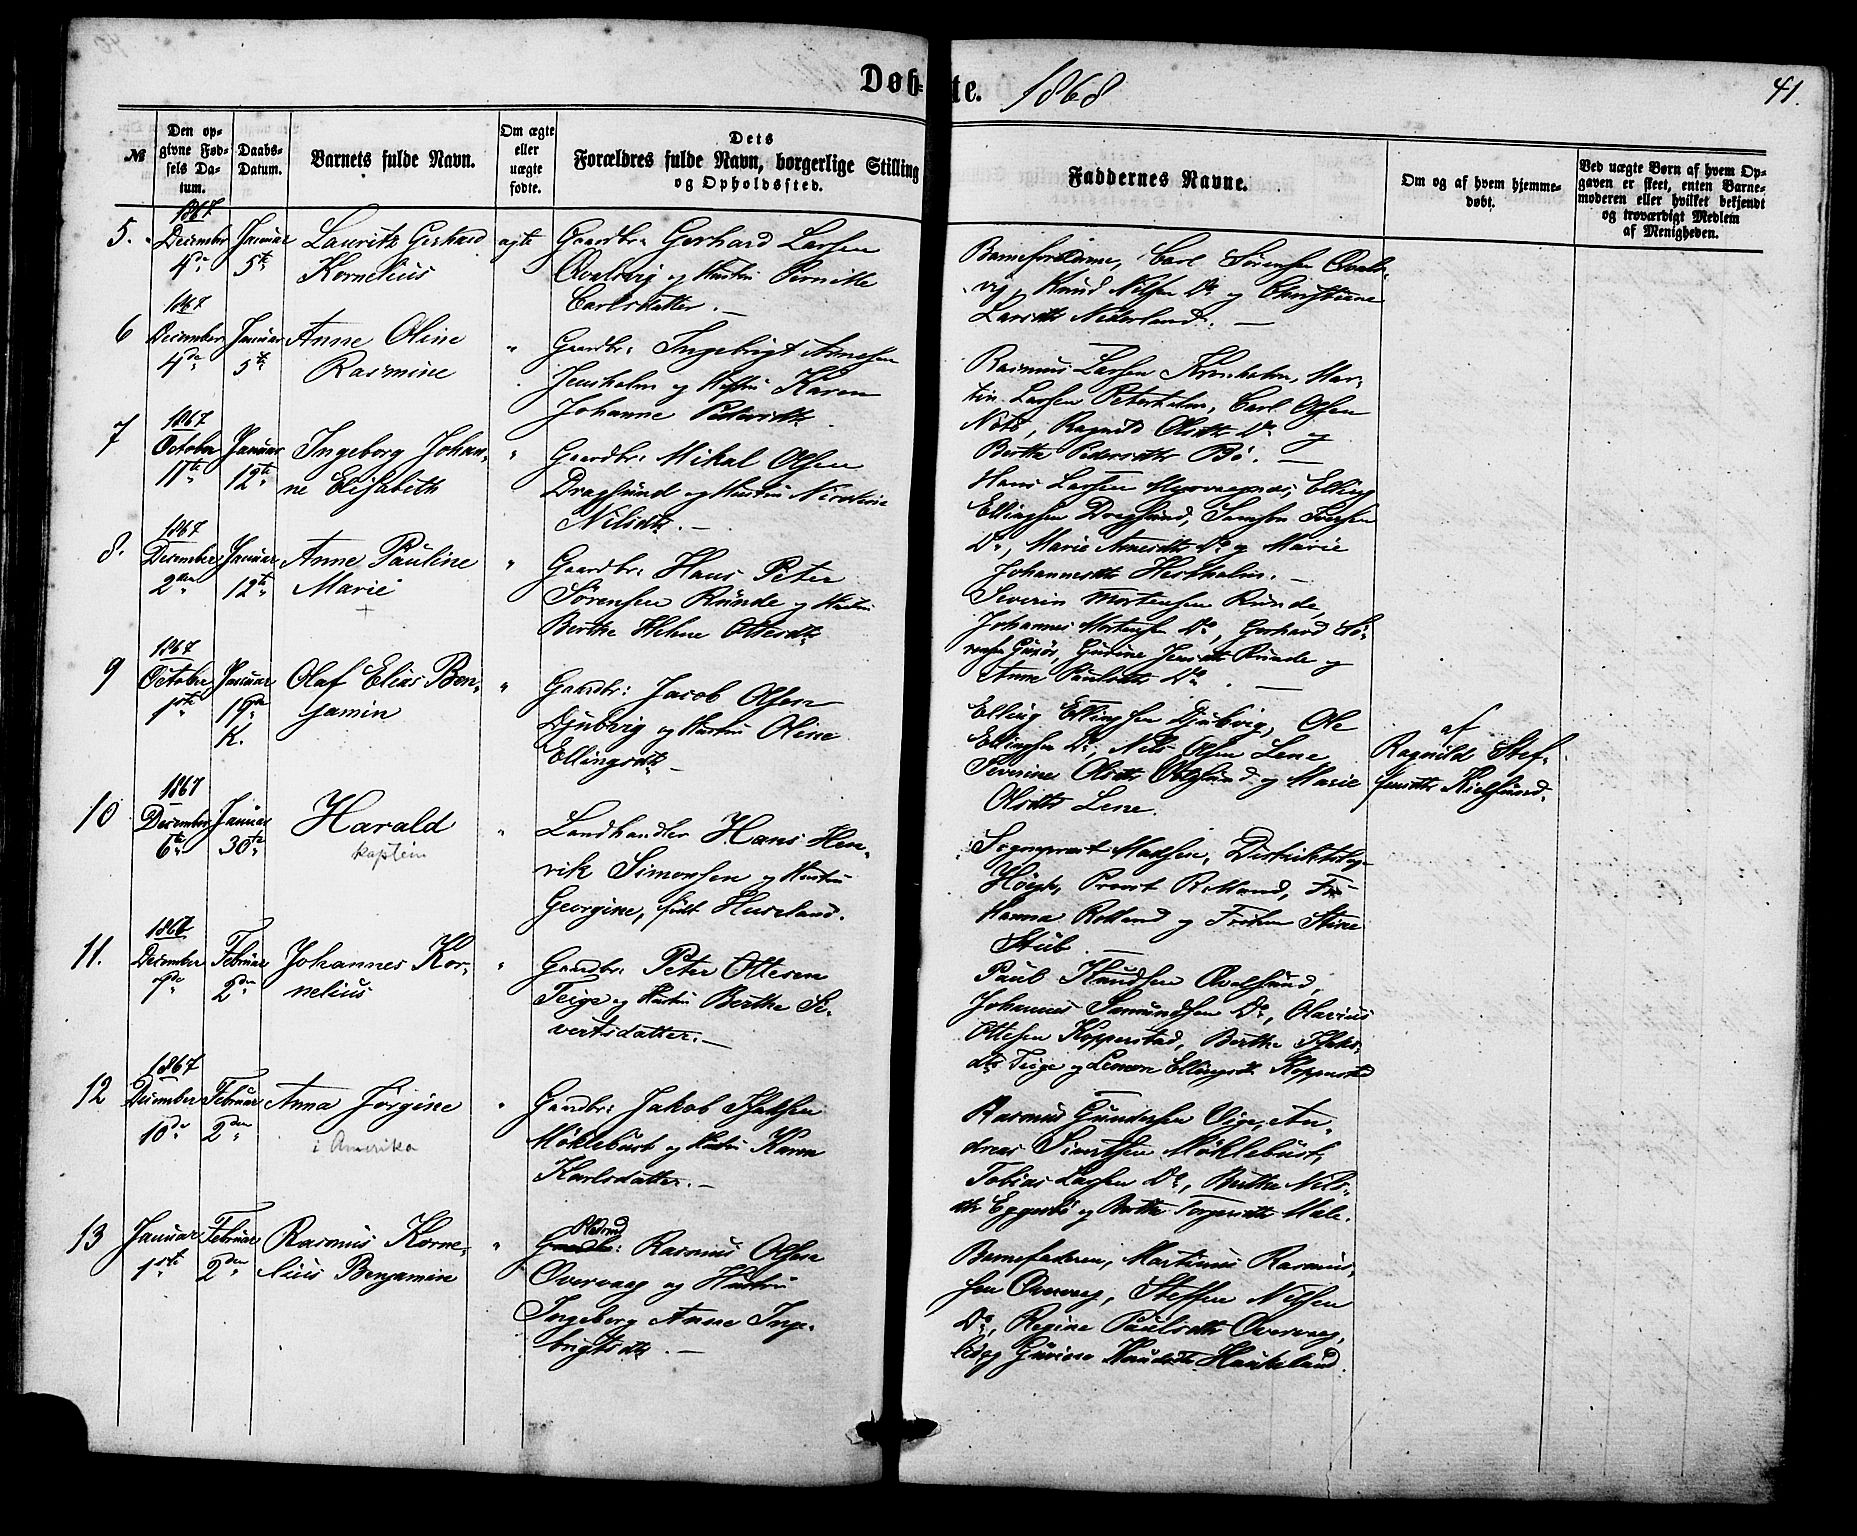 Døb-te. 1868
41.
№
Den opgivne Fødsels Datum.
Daabs-Datum.
Barnets fulde Navn.
Om ægte eller uægte fødte.
Dets Forældres fulde Navn, borgerlige Stilling og Opholdssted.
Faddernes Navne.
Om og af hvem hjemmedøbt.
Ved uægte Børn af hvem Opgaven er skeet, enten Barnemoderen eller hvilket bekjendt og troværdigt Medlem af Menigheden.
5. 1867 December 4de Januar 5te
Lauritz Gerhard
Kornelius
ægte
Gaardbr: Gerhard Larsen
Qvalsvig og Hustru Pernille
Carlsdatter.
Barnefaderen, Carl Sørensen Qvals-
vig, Knud Nilsen Do og Christiane
Larsdtr Nederland.
6 1867 December 4de Januar 5te
Anne Oline
Rasmine
"
Gaardbr: Ingebrigt Arnesen
Jensholm og Hustru Karen
Johanne Pedersdtr.
Rasmus Larsen Jensholm, Mar-
tin Larsen Petersholm, Carl Olsen
Notø, Ragnild Olsdtr Do og
Berthe Pedersdtr Bø.
7 1867 October 11te Januar 12te
Ingeborg Johan-
ne Elisabeth
"
Gaardbr: Mikal Olsen
Dragsund og Hustru Nicoline
Nilsdtr.
Hans Larsen Myrvaagnes, Elling
Ellingsen Dragsund, Samson Iversen
Do, Marie Arnesdtr Do og Marie
Johannesdtr Hestholm.
8. 1867 December 2den Januar 12te
Anne Pauline
Marie
+
"
Gaardbr: Hans Peter
Sørensen Runde og Hustru
Berthe Helene Ottesdtr
Severin Mortensen Runde,
Johannes Mortensen Do, Gerhard Sø-
rensen Gurø, Gurine Jensdtr Runde og
Anne Paulsdtr Do.
9 1867 October 1ste Januar 19de K.
Olaf Elias Ben-
jamin
"
Gaardbr: Jacob Olsen
Djubvig og Hustru Oline
Ellingsdtr
Elling Ellingsen Djubvig, Ole
Ellingsen Do, Nils Olsen Lene
Severine Olsdtr og Marie
Olsdtr Lene.
af
Ragnild Stef-
fensdtr Kielsund.
10 1867 December 6te Januar 30te
Harald
kaptein
"
Landhandler Hans Hen-
rik Simonsen og Hustru
Georgine, født Huseland.
Sogneprest Madsen, Distriktslæge
Høegh, Provst Rolland, Fru
Hanna Rolland og Frøken Stine
Stub
11. December 7de Februar 2den
Johannes Kor-
nelius
"
Gaardbr: Peter Ottesen
Teige og Hustru Berthe Si-
vertsdatter.
Paul Knudsen Qvalsund,
Johannes Samundsen Do, Olavius
Ottesen Kopperstad, Berthe Isaks-
dtr Teige og Lenore Ellingsdtr Kopperstad
12 1867 December 10de Februar 2den
Anna Jørgine
i Amerika
"
Gaardbr: Jakob Isaksen
Møklebust og Hustru Karen
Karlsdatter.
Rasmus Gundersen Vige, An-
dreas Sivertsen Møklebust,
Tobias Larsen Do, Berthe Nils-
dtr Eggesbø og Berthe Torgersdtr Male.
13 Januar 1ste Februar 2den
Rasmus Korne-
lius Benjamin
"
Gaardbr: Rasmus Olsen
Overvaag og Hustru
Ingeborg Anne Inge-
brigtsdtr.
Barnefaderen, Martinus Rasmus-
sen Overvaag, Steffen Nilsen
Do, Regine Paulsdtr Overvaag,
Gurine Knudsdtr Haukeland.